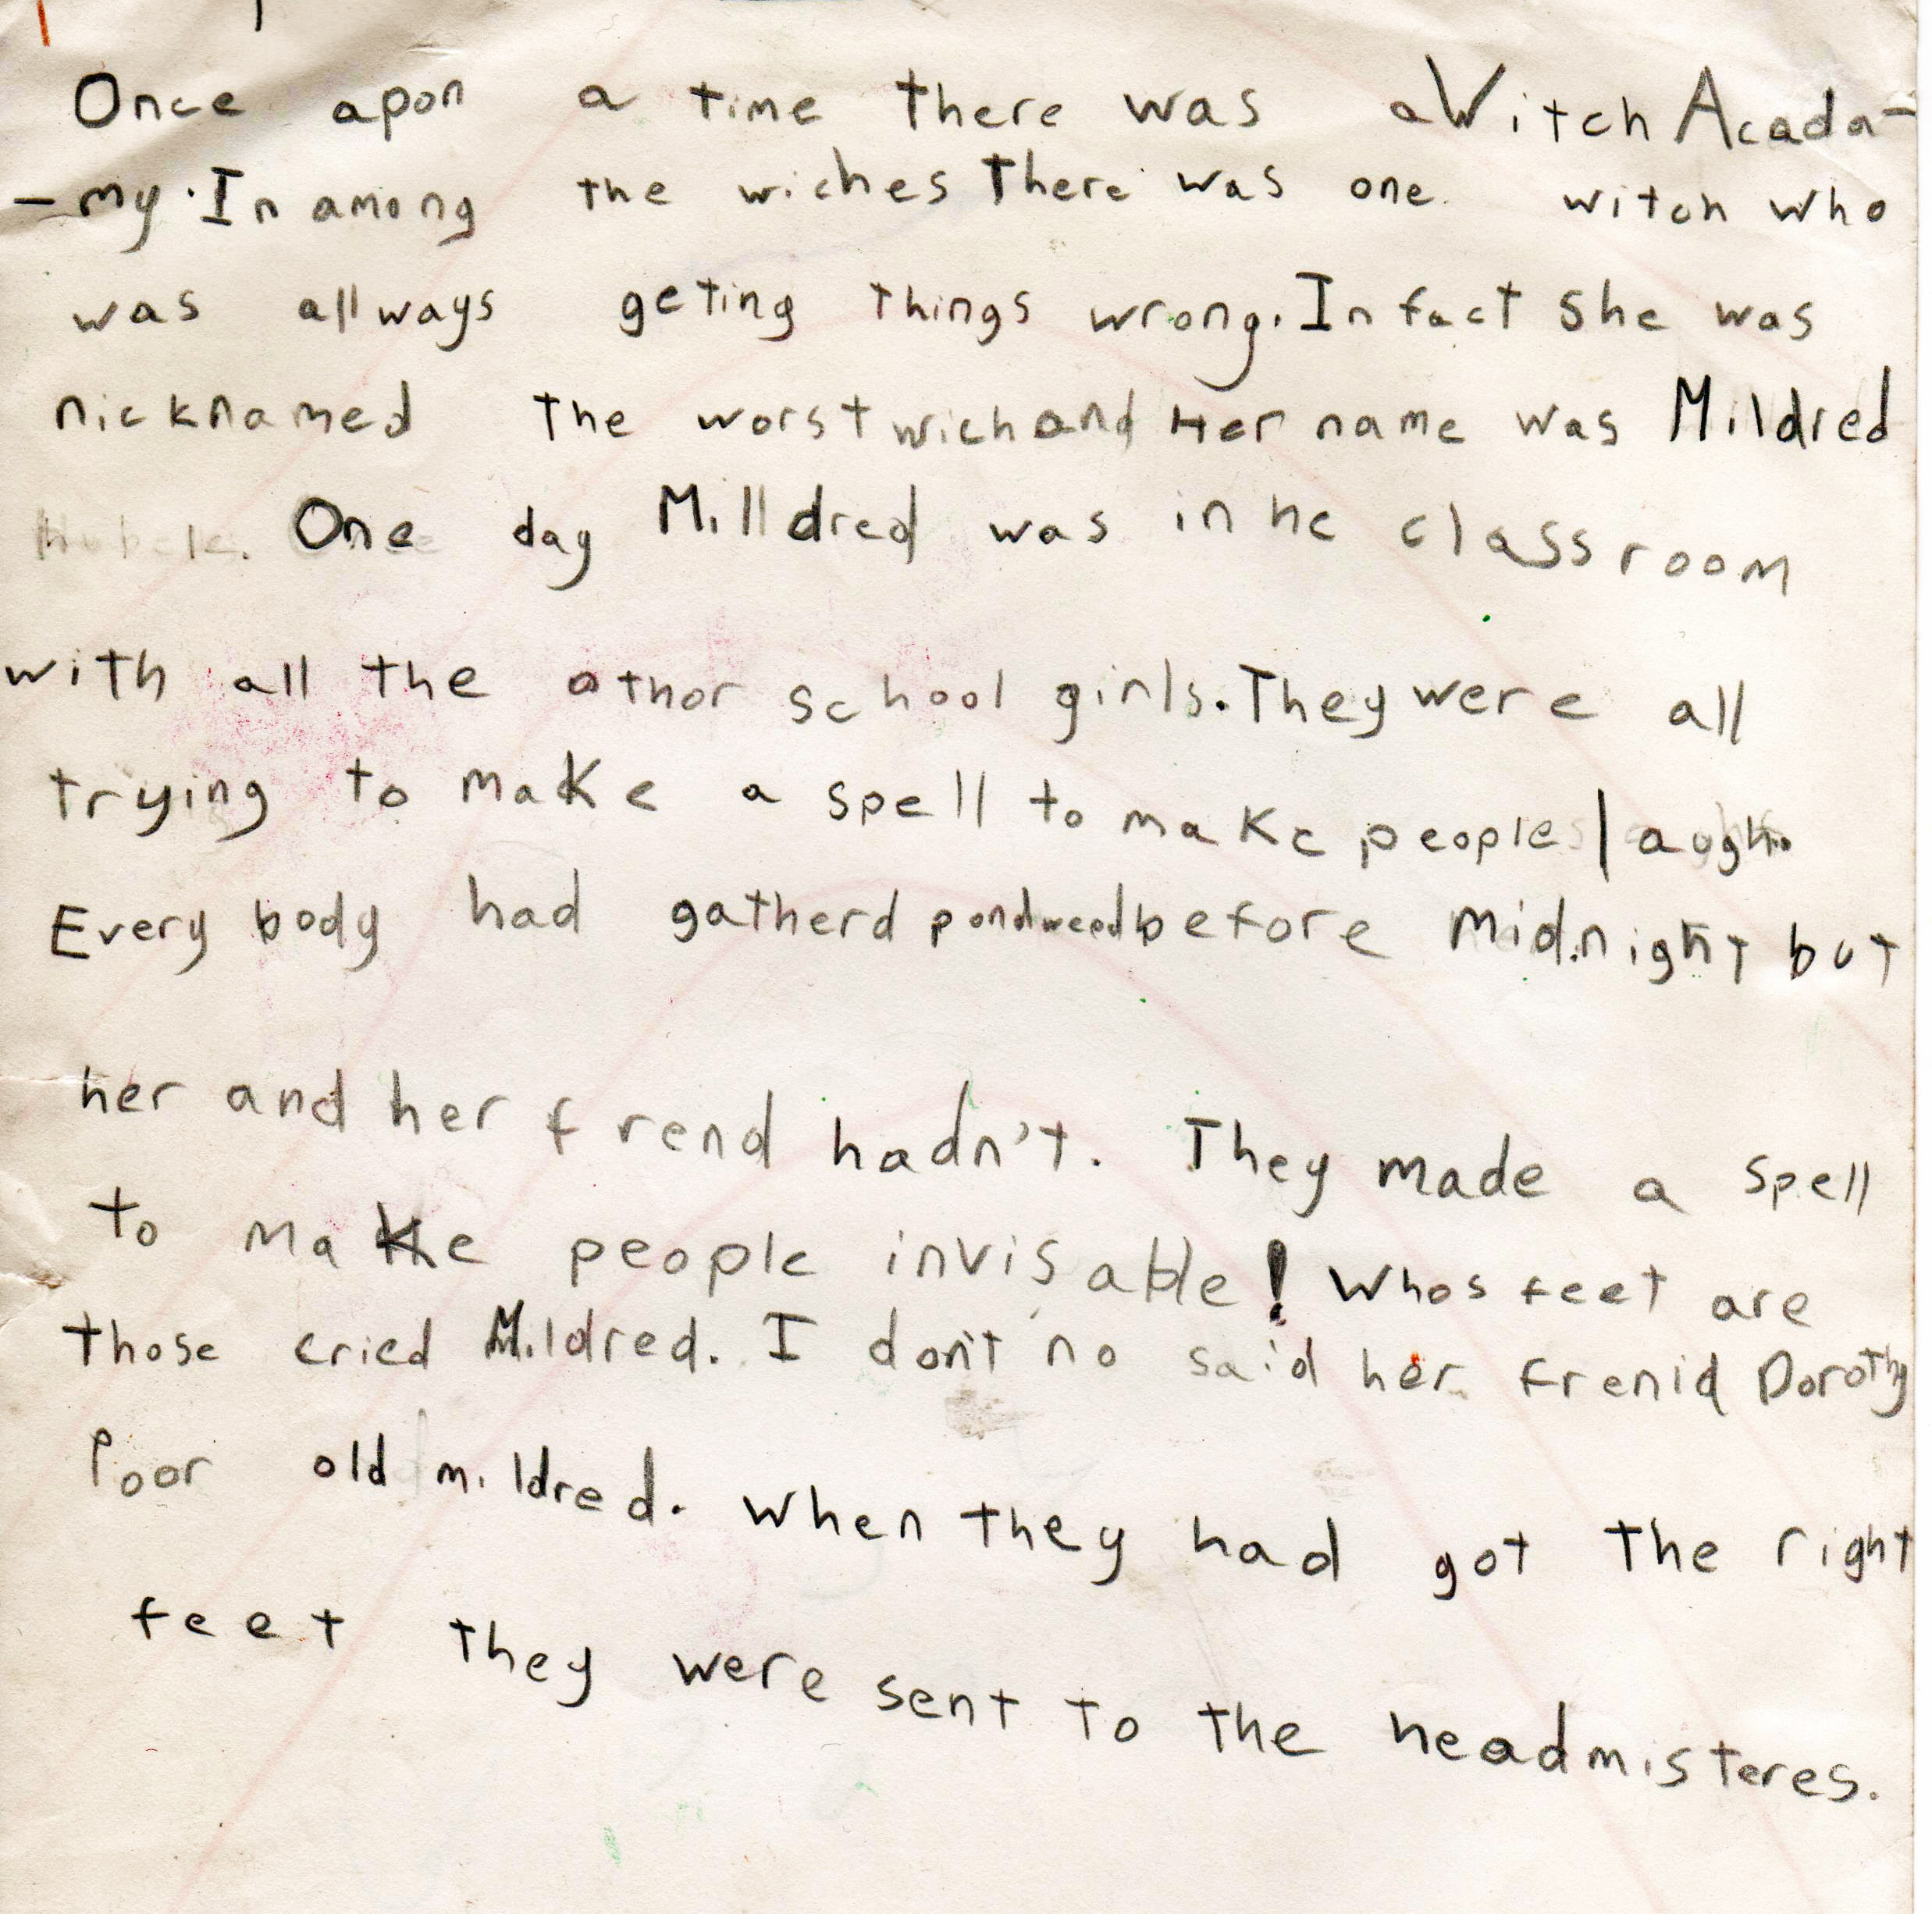 Once apon a time there was a Witch Acada-
-my. In among the wiches there was one witch who
was allways geting things wrong. In fact she was
nicknamed the worst wich and Her name was Mildred
One day Milldred was in he classroom
with all the othor school girls. They were all
trying to make a spell to make people laugh.
Every body had gatherd pondweed before Midnight but
her and her frend hadn't. They made a spell
to make people invisable! Whos feet are
those cried Mildred. I don't no said her frenid Dorothy
Poor old mildred. When they had got the right
feet they were sent to the headmisteres.